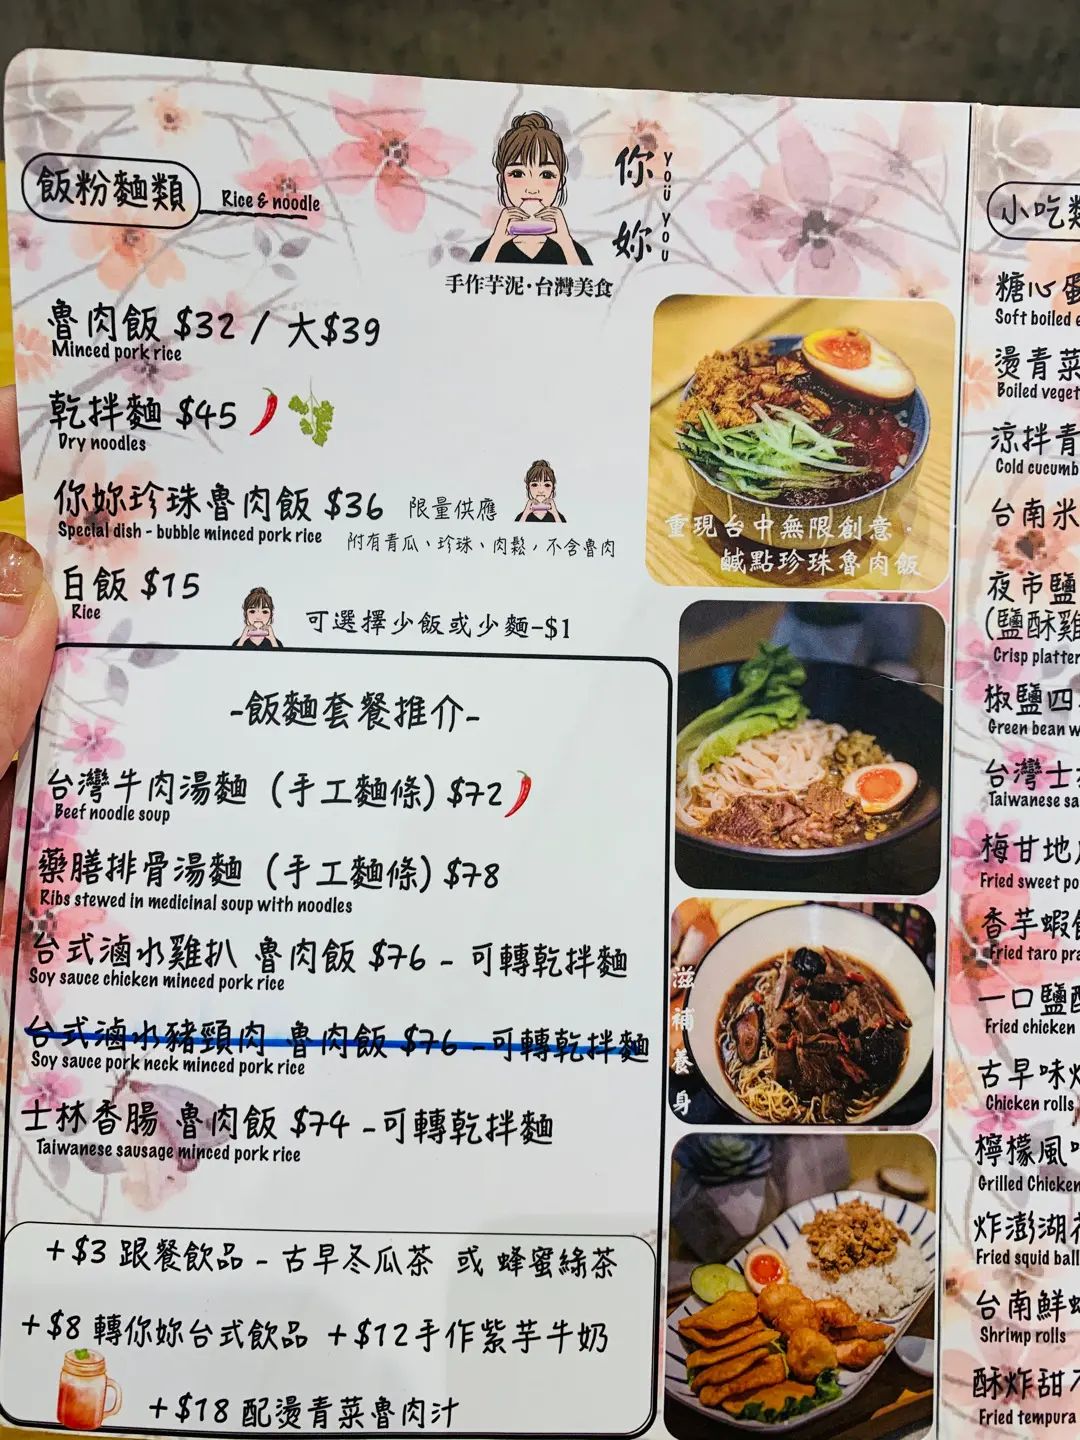 飯粉麵類 Rice & noodle
你妳 YOÜ YOU
手作芋泥·台灣美食
魯肉飯 $32 / 大$39
Minced pork rice
乾拌麵 $45
Dry noodles
你妳珍珠魯肉飯 $36 限量供應
Special dish - bubble minced pork rice
附有青瓜、珍珠、肉鬆，不含魯肉
白飯 $15
Rice
可選擇少飯或少麵-$1
重現台中無限創意·
鹹點珍珠魯肉飯
-飯麵套餐推介-
台灣牛肉湯麵 (手工麵條) $72
Beef noodle soup
藥膳排骨湯麵 (手工麵條) $78
Ribs stewed in medicinal soup with noodles
台式滷水雞扒 魯肉飯 $76 - 可轉乾拌麵
Soy sauce chicken minced pork rice
台式滷水豬頸肉 魯肉飯 $76 -可轉乾拌麵
Soy sauce pork neck minced pork rice
士林香腸 魯肉飯 $74 -可轉乾拌麵
Taiwanese sausage minced pork rice
滋補養身
+$3 跟餐飲品 - 古早冬瓜茶 或 蜂蜜綠茶
+$8 轉你妳台式飲品 +$12手作紫芋牛奶
+$18 配燙青菜魯肉汁
小吃
糖心蛋
Soft boiled
燙青菜
Boiled
涼拌青
Cold
台南米
夜市鹽
(鹽酥雞
Crisp platter
椒鹽四
Green bean
台灣士
Taiwanese
梅甘地
Fried sweet
香芋蝦
Fried taro
一口鹽
Fried chicken
古早味
Chicken rolls
檸檬風
Grilled Chicken
炸澎湖
Fried squid ball
台南鮮
Shrimp rolls
酥炸甜
Fried tempura